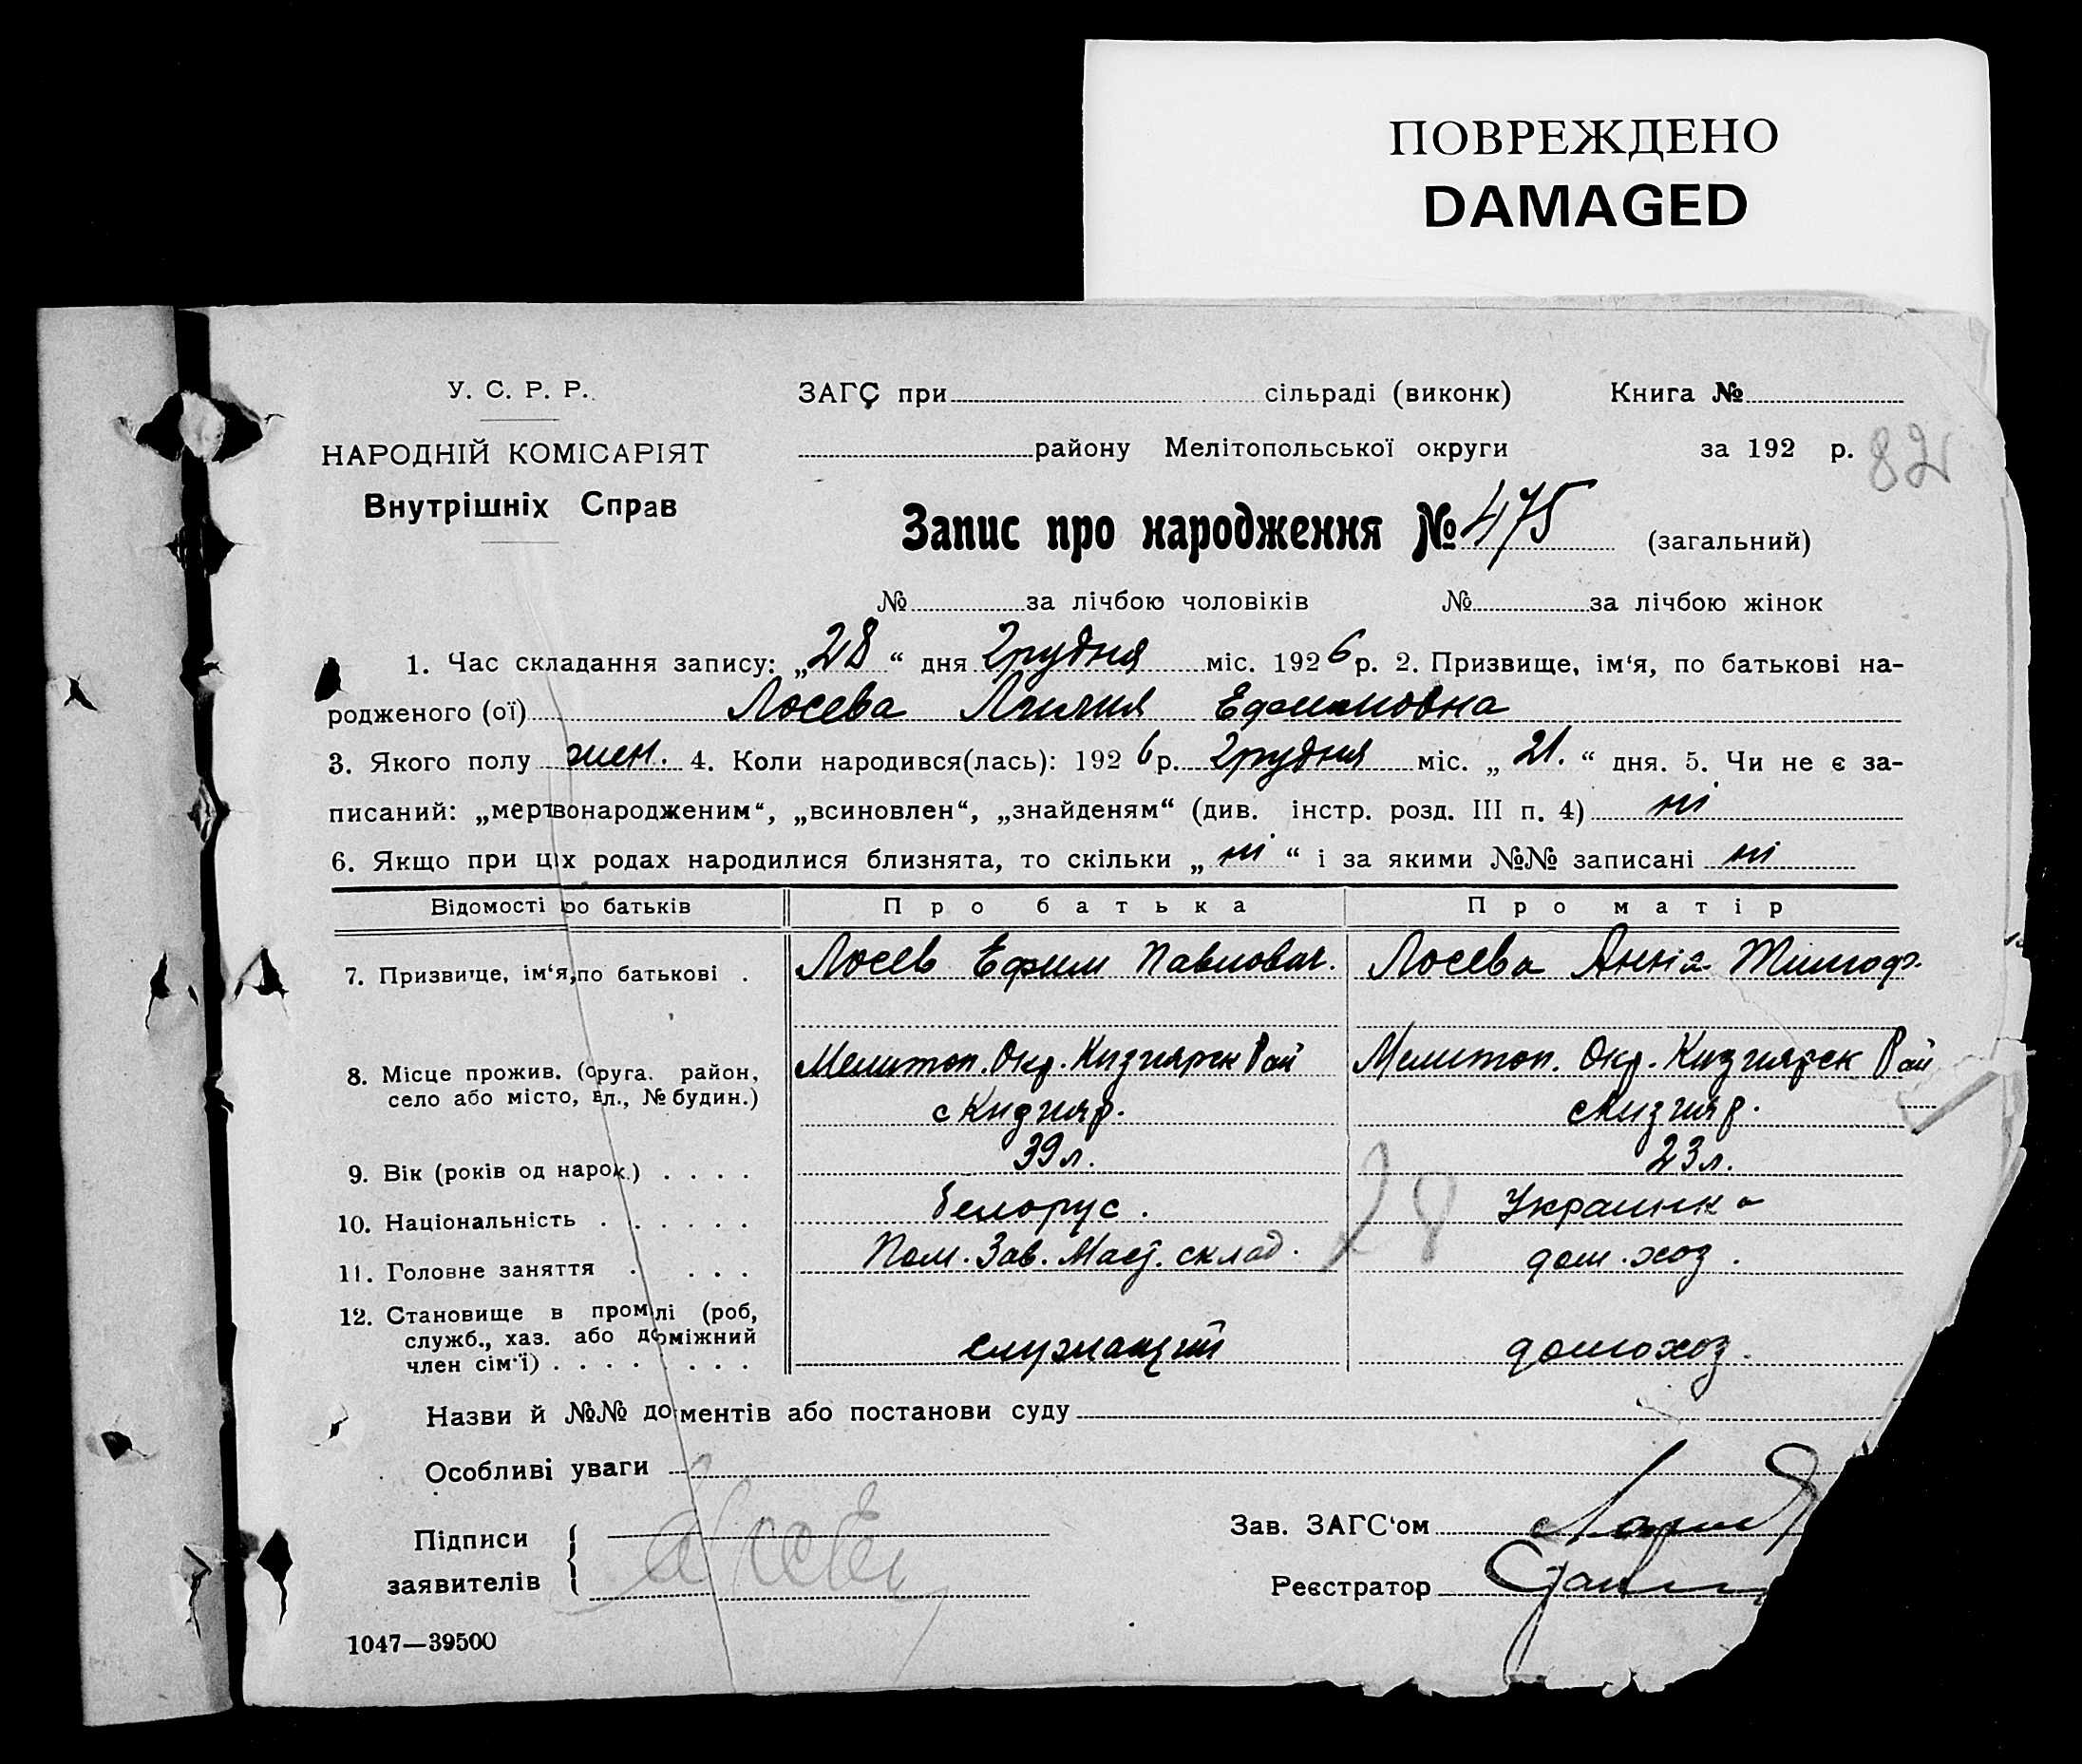 ПОВРЕЖДЕНО
DAMAGED
У. С. Р. Р.
НАРОДНІЙ КОМІСАРІЯТ
Внутрішніх Справ
ЗАГС при сільраді (виконк) Книга №
району Мелітопольської округи за 192 р.
82
Запис про народження № 475 (загальний)
№ за лічбою чоловіків № за лічбою жінок
1. Час складання запису: „28“ дня Грудня міс. 1926 р. 2. Призвище, ім‘я, по батькові на-
родженого (ої) Лосева Лилия Ефимовна
3. Якого полу жен. 4. Коли народився(лась): 1926 р. Грудня міс. „21.“ дня. 5. Чи не є за-
писаний: „мертвонародженим“, „всиновлен“, „знайденям“ (див. інстр. розд. III п. 4) ні
6. Якщо при ціх родах народилися близнята, то скільки „ні“ і за якими №№ записані ні
Відомості про батьків Про батька Про матір
7. Призвище, ім‘я, по батькові . Лосев Ефим Павлович. Лосева Анна Тимоф.
8. Місце прожив. (округа. район, село або місто, вл., № будин.) Мелитоп. Окр. Кизиярск Рай Мелитоп. Окр. Кизиярск Рай
с Кизияр. с Кизияр.
9. Вік (років од нарок.) . . . . 39 л. 23 л.
10. Національність . . . . . . белорус. Украинка
11. Головне заняття . . . . Пом. Зав. Маст. склад. дом. хоз.
28
12. Становище в промислі (роб, служб., хаз. або допоміжний член сім‘ї) . . . . . . . . служащий домохоз.
Назви й №№ документів або постанови суду
Особливі уваги
Підписи
заявителів
Зав. ЗАГС‘ом
Реєстратор
1047—39500